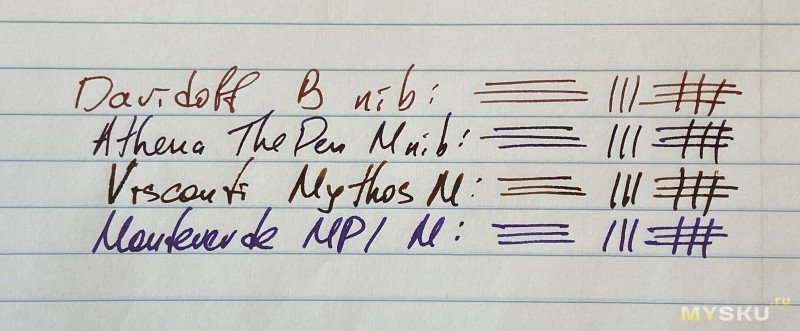 Davidoff B nib:
Athena ThePen M nib:
Visconti Mythos M:
Monteverde MP1 M:
MYSKU.ru